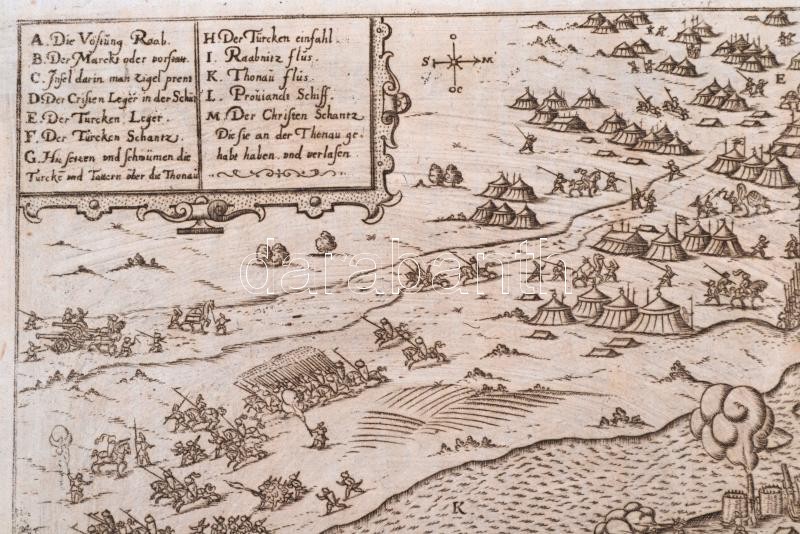 A. Die Vöstung Raab.
B. Der Marckt oder vorstatt.
C. Insel darin man zigel prent
D Der Cristen Leger in der Schüt
E. Der Türcken Leger.
F. Der Türcken Schantz.
G. Hie setzen vnd schwümen die
Türckē vnd Tattern vber die Thonau
H Der Türcken einfahl.
I. Raabnitz flus.
K Thonaü flus.
L. Proüiandt Schiff.
M. Der Christen Schantz
Die sie an der Thonau ge-
habt haben. vnd verlasen.
O
S M
OC
E
K
databanth